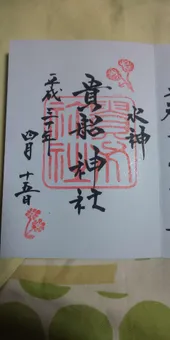 水神
貴船神社
平成三十年
四月十五日